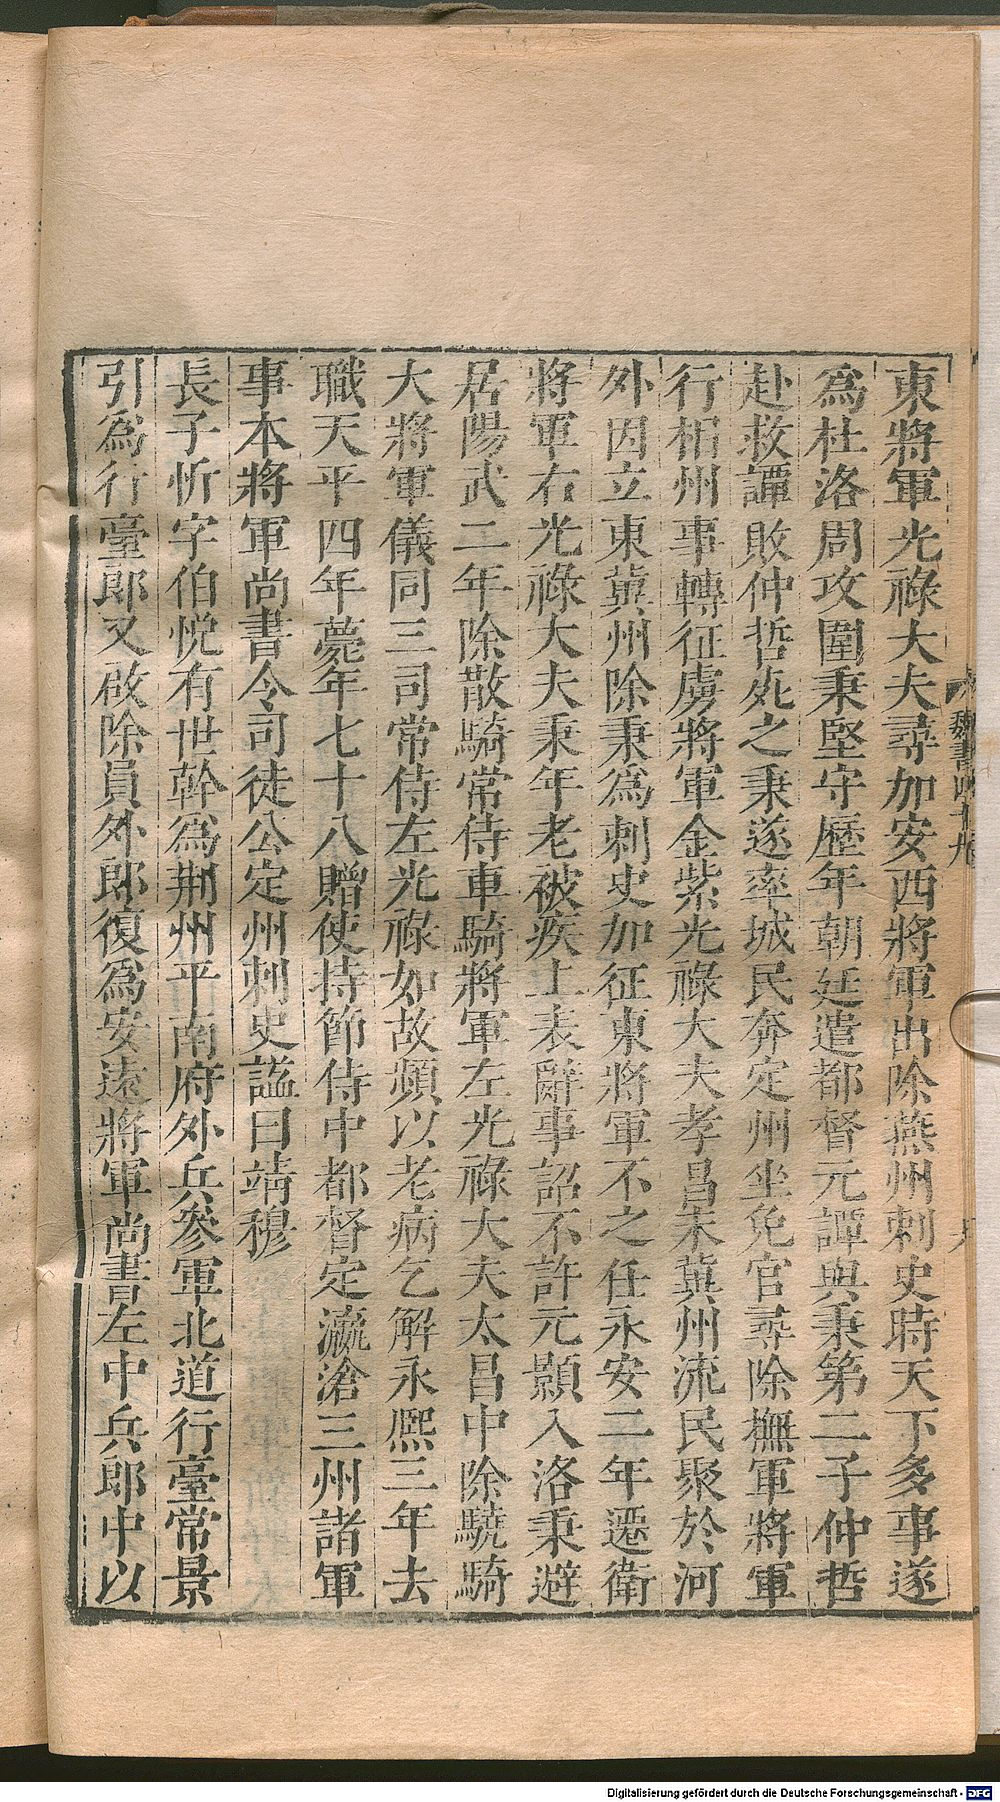 東將軍光祿大夫尋加安西將軍出除燕州刺史時天下多事遂
爲杜洛周攻圍秉堅守歷年朝廷遣都督元譚與秉第二子仲哲
赴救譚敗仲哲死之秉遂率城民奔定州坐免官尋除撫軍將軍
行相州事轉征虜將軍金紫光祿大夫孝昌末冀州流民聚於河
外因立東冀州除秉爲刺史加征東將軍不之任永安二年遷衛
將軍右光祿大夫秉年老被疾上表辭事詔不許元顥入洛秉避
居陽武二年除散騎常侍車騎將軍左光祿大夫太昌中除驍騎
大將軍儀同三司常侍左光祿如故頻以老病乞解永熙三年去
職天平四年薨年七十八贈使持節侍中都督定瀛滄三州諸軍
事本將軍尚書令司徒公定州刺史諡曰靖穆
長子忻字伯悅有世幹爲荆州平南府外兵參軍北道行臺常景
引爲行臺郎又啟除員外郎復爲安遠將軍尚書左中兵郎中以
魏書四十九
Digitalisierung gefördert durch die Deutsche Forschungsgemeinschaft - DFG